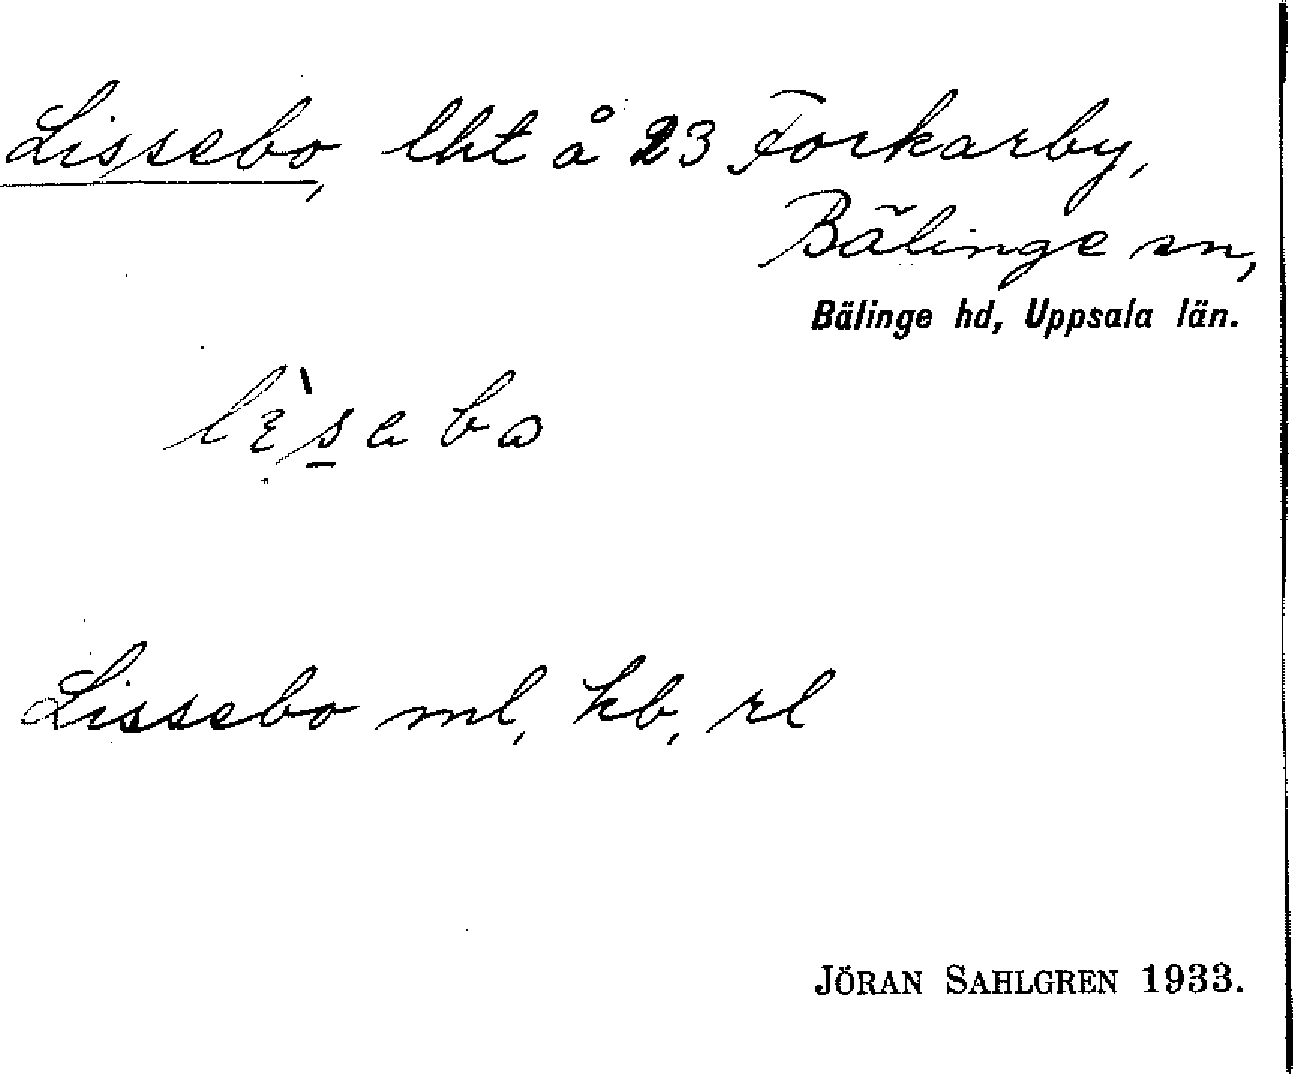 Lissebo, lht å 23 Forkarby,
Bälinge sn,
Bälinge hd, Uppsala län.
Lissebo ml, hb, rl
JÖRAN SAHLGREN 1933.